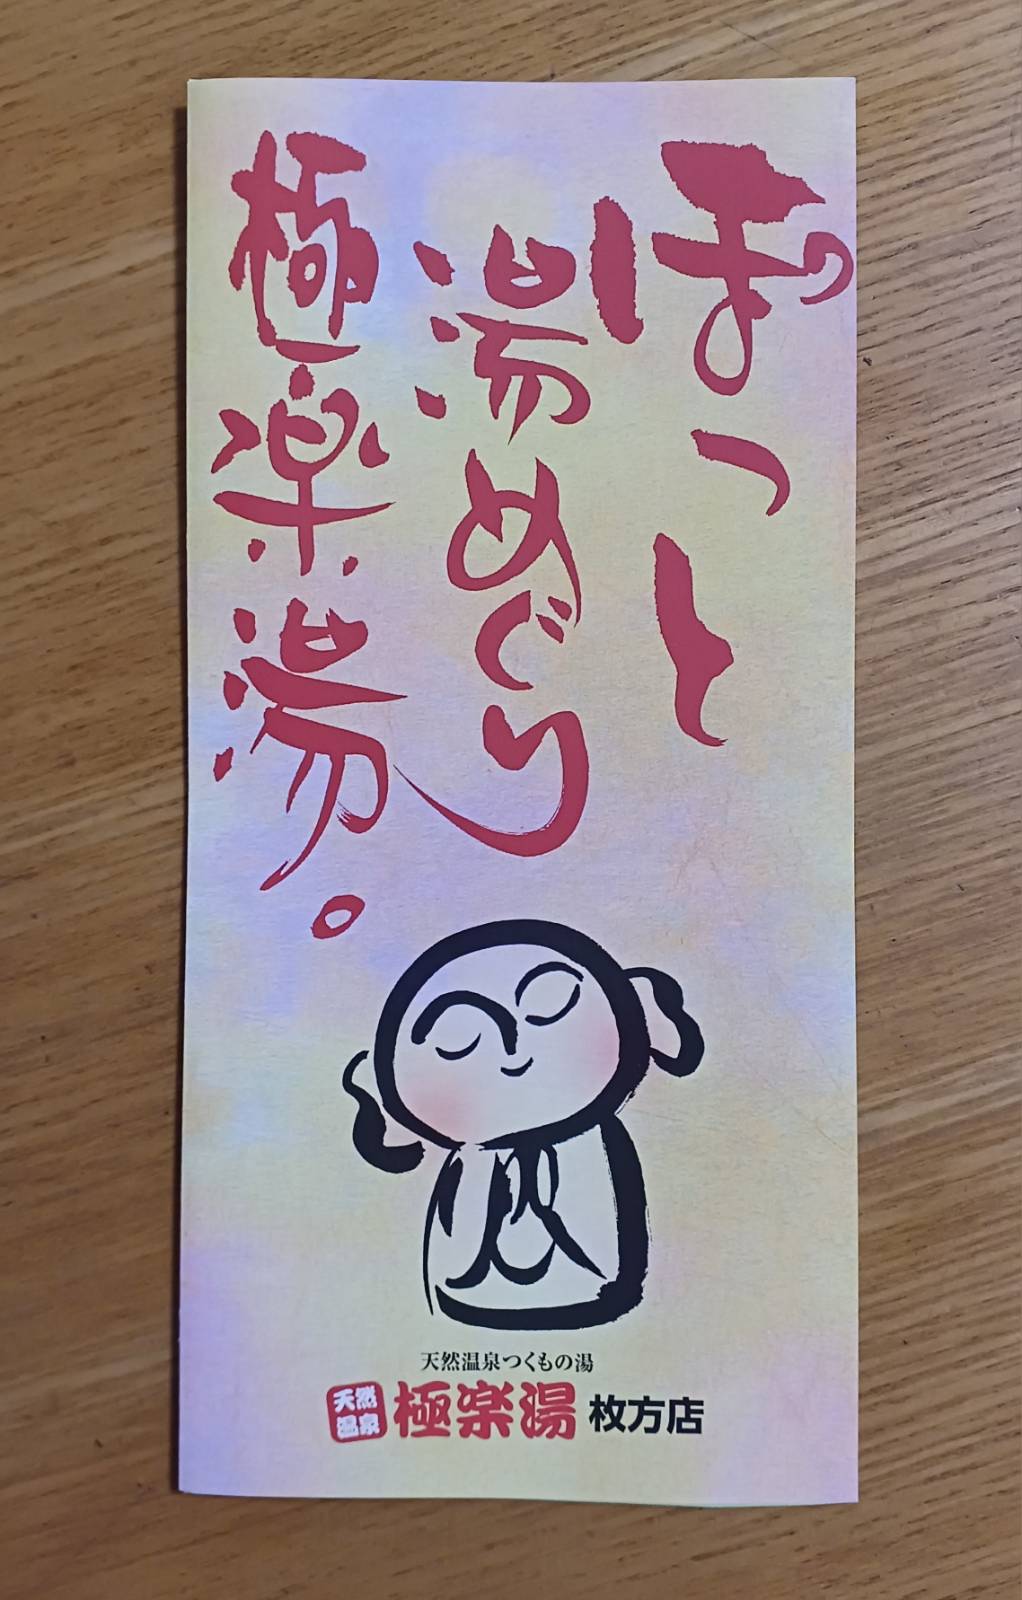 ぽっと
湯めぐり
極楽湯。
天然温泉つくもの湯
天然温泉 極楽湯 枚方店